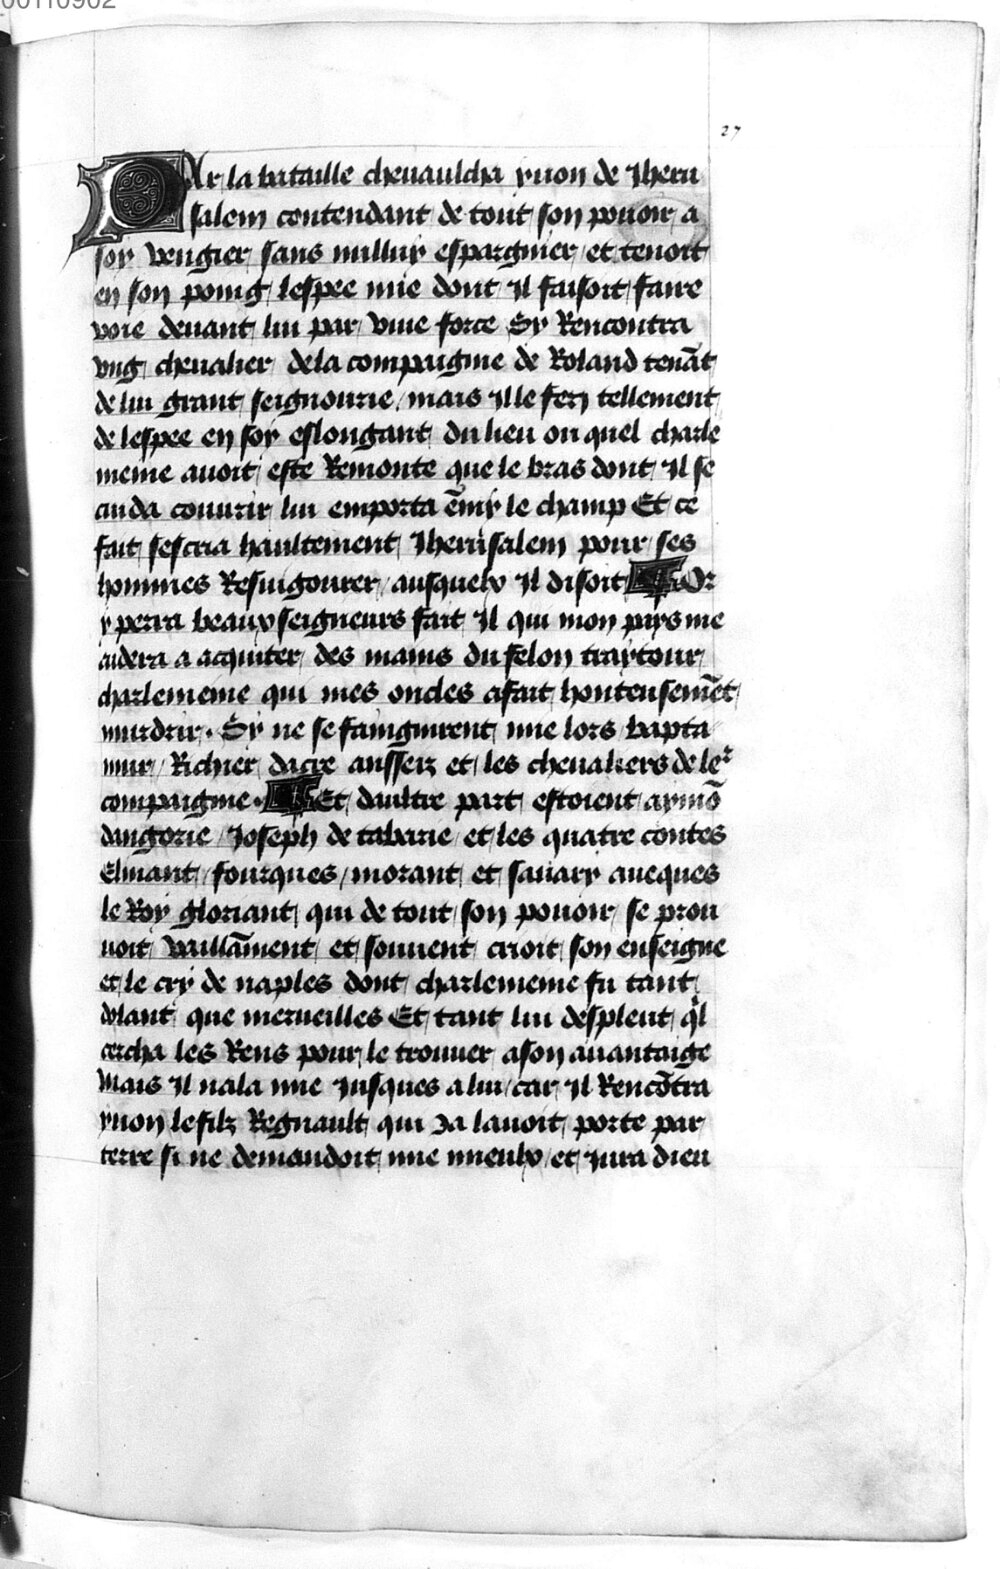 00110902
27
PAr la bataille cheuaulcha yuon de Iheru
salem contendant de tout son pouoir a
soy vengier sans nulluy espargnier et tenoit
en son poing lespee nue dont Il faisoit faire
voie deuant lui par viue force Sy Rencontra
vng cheualier dela compaignie de Roland tenãt
de lui grant seignourie mais Ille fery tellement
de lespee en soy eslongant du lieu ou quel charle
meine auoit este Remonte que le bras dont Il se
cuida couurir lui emporta ẽmy le champ Et ce
fait sescria haultement Iherusalem pour ses
hommes Resuigourer ausquelx Il disoit Or
y perra beaux seigneurs fait Il qui mon pays me
aidera a acquiter des mains du felon traytour
charlemeine qui mes oncles afait honteusemẽt
murdrir . Sy ne se faingnirent mie lors bapta
mur Richier dacre ansseiz et les cheualiers de le˜
compaignie . Et daultre part estoient aymõ
dangorie Joseph de tabarie et les quatre contes
Elinant fourques morant et sauary aueques
le Roy gloriant qui de tout son pouoir se prou
uoit vaillãment et souuent crioit son enseigne
et le cry de naples dont charlemeine fu tant
dolant que merueilles Et tant lui despleut q̃l
cercha les Rens pour le trouuer ason auantaige
Mais Il nala mie Jusques a lui car Il Rencõtra
yuon lefilz Regnault qui Ja lauoit porte par
terre si ne demandoit mie mieulx et Jura dieu